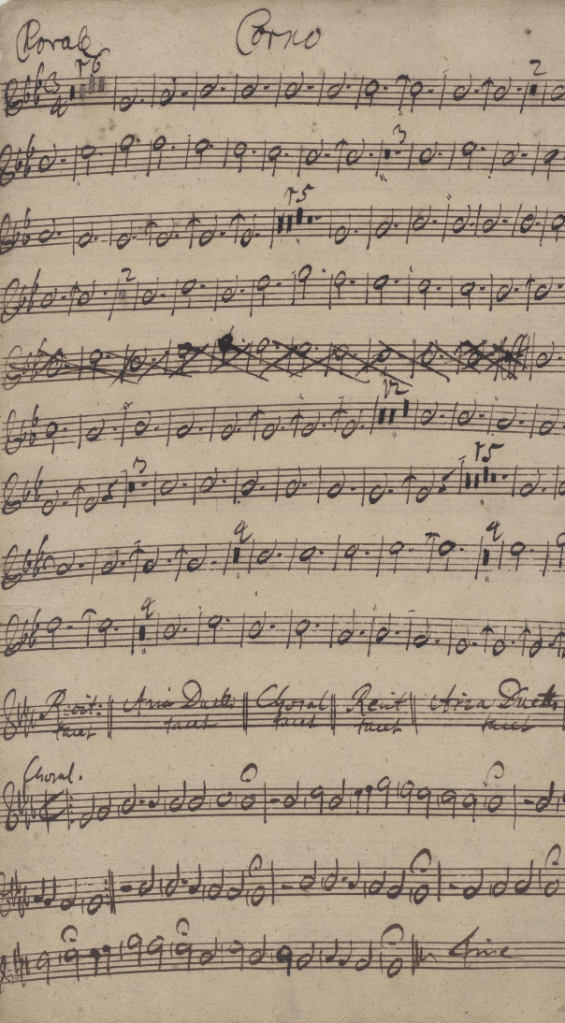 Corale Corno
16
3
4
2
3
15
2
12
3 15
4 4
4
Recit: Aria Duetto Choral Recit Aria Duetto
tacet tacet tacet tacet tacet
Choral.
Fine